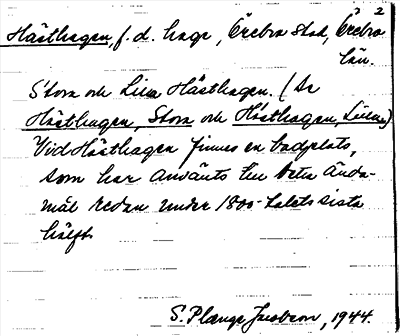 2
Hästhagen, f.d. hage, Örebro stad, Örebro
län.
Stora och Lilla Hästhagen. (Se
Hästhagen, Stora och Hästhagen, Lilla)
Vid Hästhagen finnes en badplats,
som har använts till detta ända-
mål redan under 1800-talets sista
hälft.
S. Plange Jacobson, 1944.